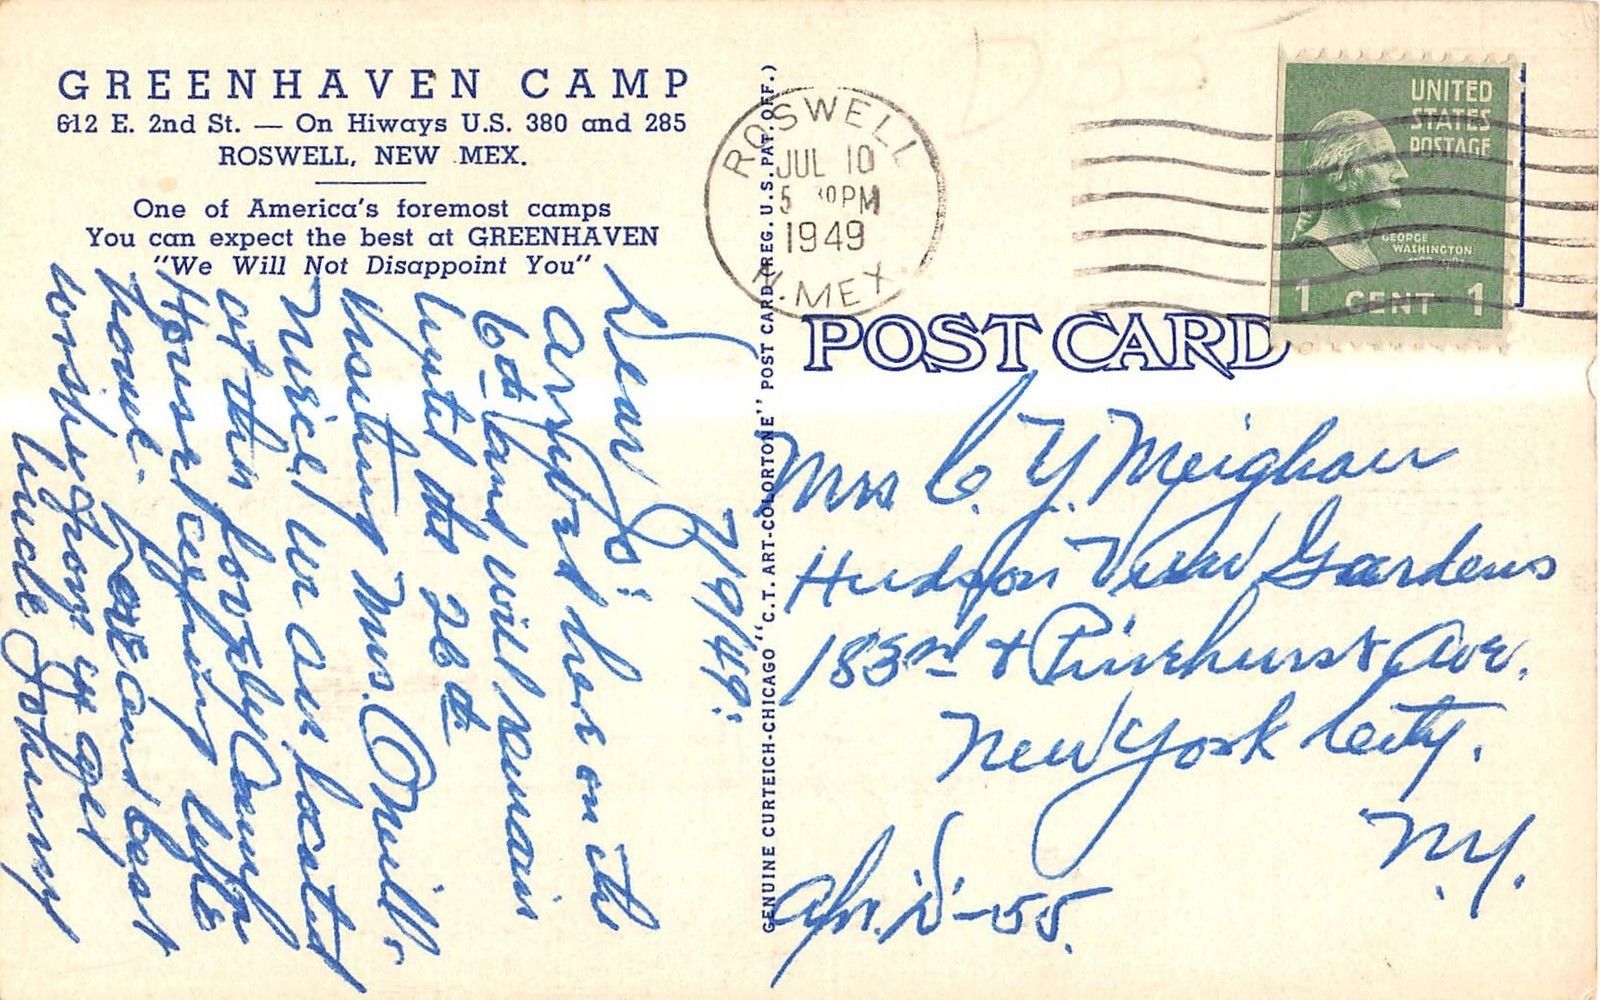 GREENHAVEN CAMP
612 E. 2nd St. — On Hiways U.S. 380 and 285
ROSWELL, NEW MEX.
One of America's foremost camps
You can expect the best at GREENHAVEN
"We Will Not Disappoint You"
7/9/49:
Dear Jo:
Arrived here on the
6th and will remain
until the 26th
visiting Mrs. O'Neill's
niece. We are located
at this lovely Camp
House Keeping
home. Love and best
wishes from
Uncle Johnny
GENUINE CURTEICH-CHICAGO "C.T. ART-COLORTONE" POST CARD (REG. U.S. PAT. OFF.)
ROSWELL
JUL 10
5 30 PM
1949
N. MEX.
UNITED
STATES
POSTAGE
GEORGE
WASHINGTON
1 CENT 1
POST CARD
Mrs C. Y. Meighan
Hudson View Gardens
183rd & Pinehurst Ave.
New York City.
N.Y.
Apt. D-55.
D 55